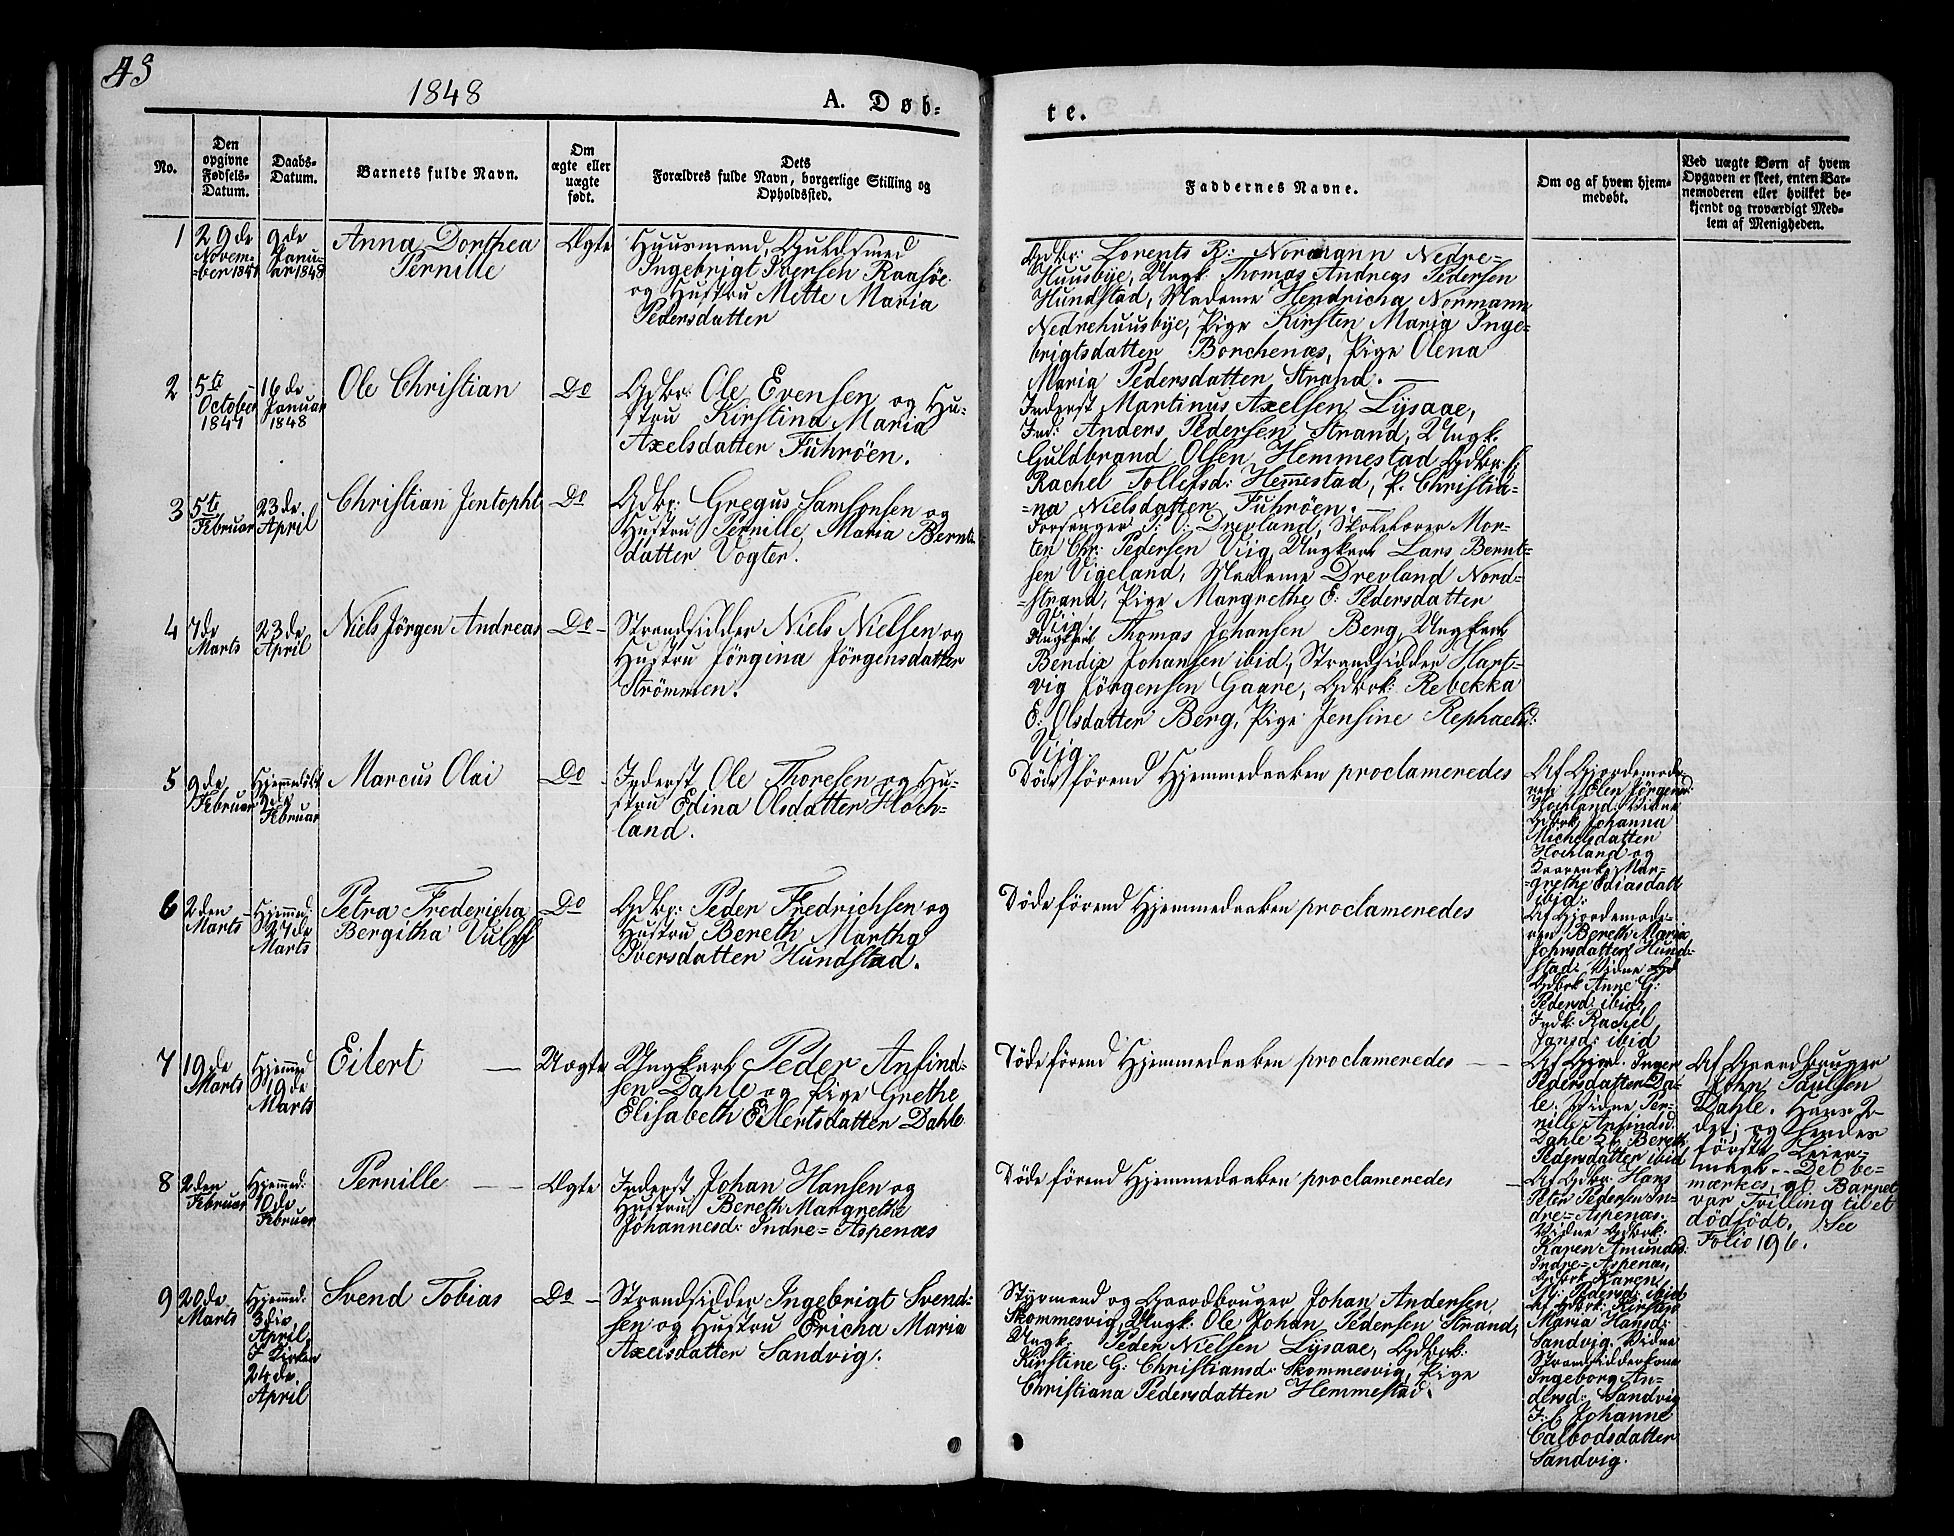 43
1848
A. Døb-
te.
No.
Den
opgivne
Fødsels-
Datum.
Daabs-
Datum.
Barnets fulde Navn.
Om
ægte eller
uægte
født.
Dets
Forældres fulde Navn, borgerlige Stilling og
Opholdssted.
Faddernes Navne.
Om og af hvem hjem-
medøbt.
Ved uægte Børn af hvem
Opgaven er skeet, enten Bar-
nemoderen eller hvilket be-
kjendt og troværdigt Med-
lem af Menigheden.
1
29de
Novem-
ber 1847
9de
Janu-
ar 1848
Anna Dorthea
Pernille
Ægte
Huusmand, Guldsmed
Ingebrigt Iversen Raasöe
og Hustru Mette Maria
Pedersdatter
Gdbr: Lorents B: Normann Nedre-
Huusbye, Ungk. Thomas Andreas Pedersen
Hundstad, Madame Hendricha Normann
Nedrehuusbye, Pige Kirsten Maria Inge-
brigtsdatter Borchenæs, Pige Olena
Maria Pedersdatter Strand. —
2
5te
October
1847
16de
Januar
1848
Ole Christian
Do
Gdbr: Ole Evensen og Hu-
stru Kirstina Maria
Axelsdatter Fuhröen.
Inderst Martinus Axelsen Lysaae,
Ind: Anders Pedersen Strand, Ungk.
Guldbrand Olsen Hemmestad Gdbr.k:
Rachel Tollefsd: Hemmestad, P. Christia-
na Nielsdatter Fuhröen. —
3
5te
Februar
23de
April
Christian Jentopht
Do
Gdbr: Gregus Samsonsen og
Hustru Pernille Maria Bernts-
datter Vogter.
Forsanger P. O: Drevland, Skolelærer Mor-
ten Chr: Pedersen Viig, Ungkarl Lars Bernt-
sen Vigeland, Madame Drevland Nord-
strand, Pige Margrethe E: Pedersdatter
Viig.
4
7de
Marts
23de
April
Niels Jörgen Andreas
Do
Strandsidder Niels Nielsen og
Hustru Jörgina Jörgensdatter
Strömmen.
Ungkarl Thomas Johansen Berg, Ungkarl
Bendix Johansen ibid, Strandsidder Hart-
vig Jörgensen Gaare, Gdbrk: Rebekka
E: Olsdatter Berg, Pige Jensine Rephaelsd:
Viig
5
9de
Februar
Hjemmedöbt
Februar
Marcus Olai
Do
Inderst Ole Thoresen og Hu-
stru Edina Olsdatter Hoch-
land.
Döde förend Hjemmedaaben proclameredes
Af Gjordemode-
ren Elen Jörgensd:
Hochland. Vidne
Gdbrk Johanna
Michelsdatter
Hochland og
Margrethe Ediasdatt
ibid:
6
2den
Marts
Hjemmed:
27de
Marts
Petra Fredericha
Bergitha Vulff
Do
Gdbr: Peder Fredrichsen og
Hustru Bereth Martha
Iversdatter Hundstad.
Döde förend Hjemmedaaben proclameredes
Af Gjordemode-
ren Bereth Maria
Johnsdatter Hund-
stad: Vidne
Gdbrk Anne G:
Pedersd: ibid,
Indk: Rachel
Jansd: ibid
7
19de
Marts
Hjemmed
19de
Marts
Eilert —
Uægte
Ungkarl Peder Anfind-
sen Dahle og Pige Grethe
Elisabeth Eilertsdatter Dahle
Döde förend Hjemmedaaben proclameredes — —
Af Gjord: Inger
Pedersdatter Da-
le. Vidne Per-
nille Anfindsd:
Dahle og Bereth
Pedersdatter ibid
Af Gaardbruger
John Paulsen
Dahle. Hans 2-
det; og hendes
förste Leier-
maal. - Det be-
mærkes, at Barnet
var Tvilling til et
dödfödt. See
Folio 196.
8
2den
Februar
Hjemmed:
10de
Februar
Pernille — —
Ægte
Inderst Johan Hansen og
Hustru Bereth Margrethe
Johannesd: Indre-Aspenæs
Döde förend Hjemmedaaben proclameredes —
Af Gdbr: Hans
Peter Pedersen In-
dre-Aspenæs.
Vidne Gdbrk:
Karen Amundsd:
Indre-Aspenæs,
Gdbrk Karen
M: Pedersd: ibid
9
20de
Marts
Hjemmed:
3die
April,
I Kirken
24de
April
Svend Tobias
Do —
Strandsidder Ingebrigt Svend-
sen og Hustru Ericha Maria
Axelsdatter Sandvig.
Styrmand og Gaardbruger Johan Andersen
Skommesvig, Ungk: Ole Johan Pedersen Strand,
Ungk: Peder Nielsen Lysaae, Gdbrk:
Kirstine G: Christiansd: Skommesvig, Pige
Christiana Pedersdatter Hemmestad.
Af Gdbrk: Kirstine
Maria Hansd:
Sandvig. Vidne
Strandsidderkone
Ingeborg An-
dersd: Sandvig
I: C Johanne
Calbodsdatter
Sandvig.